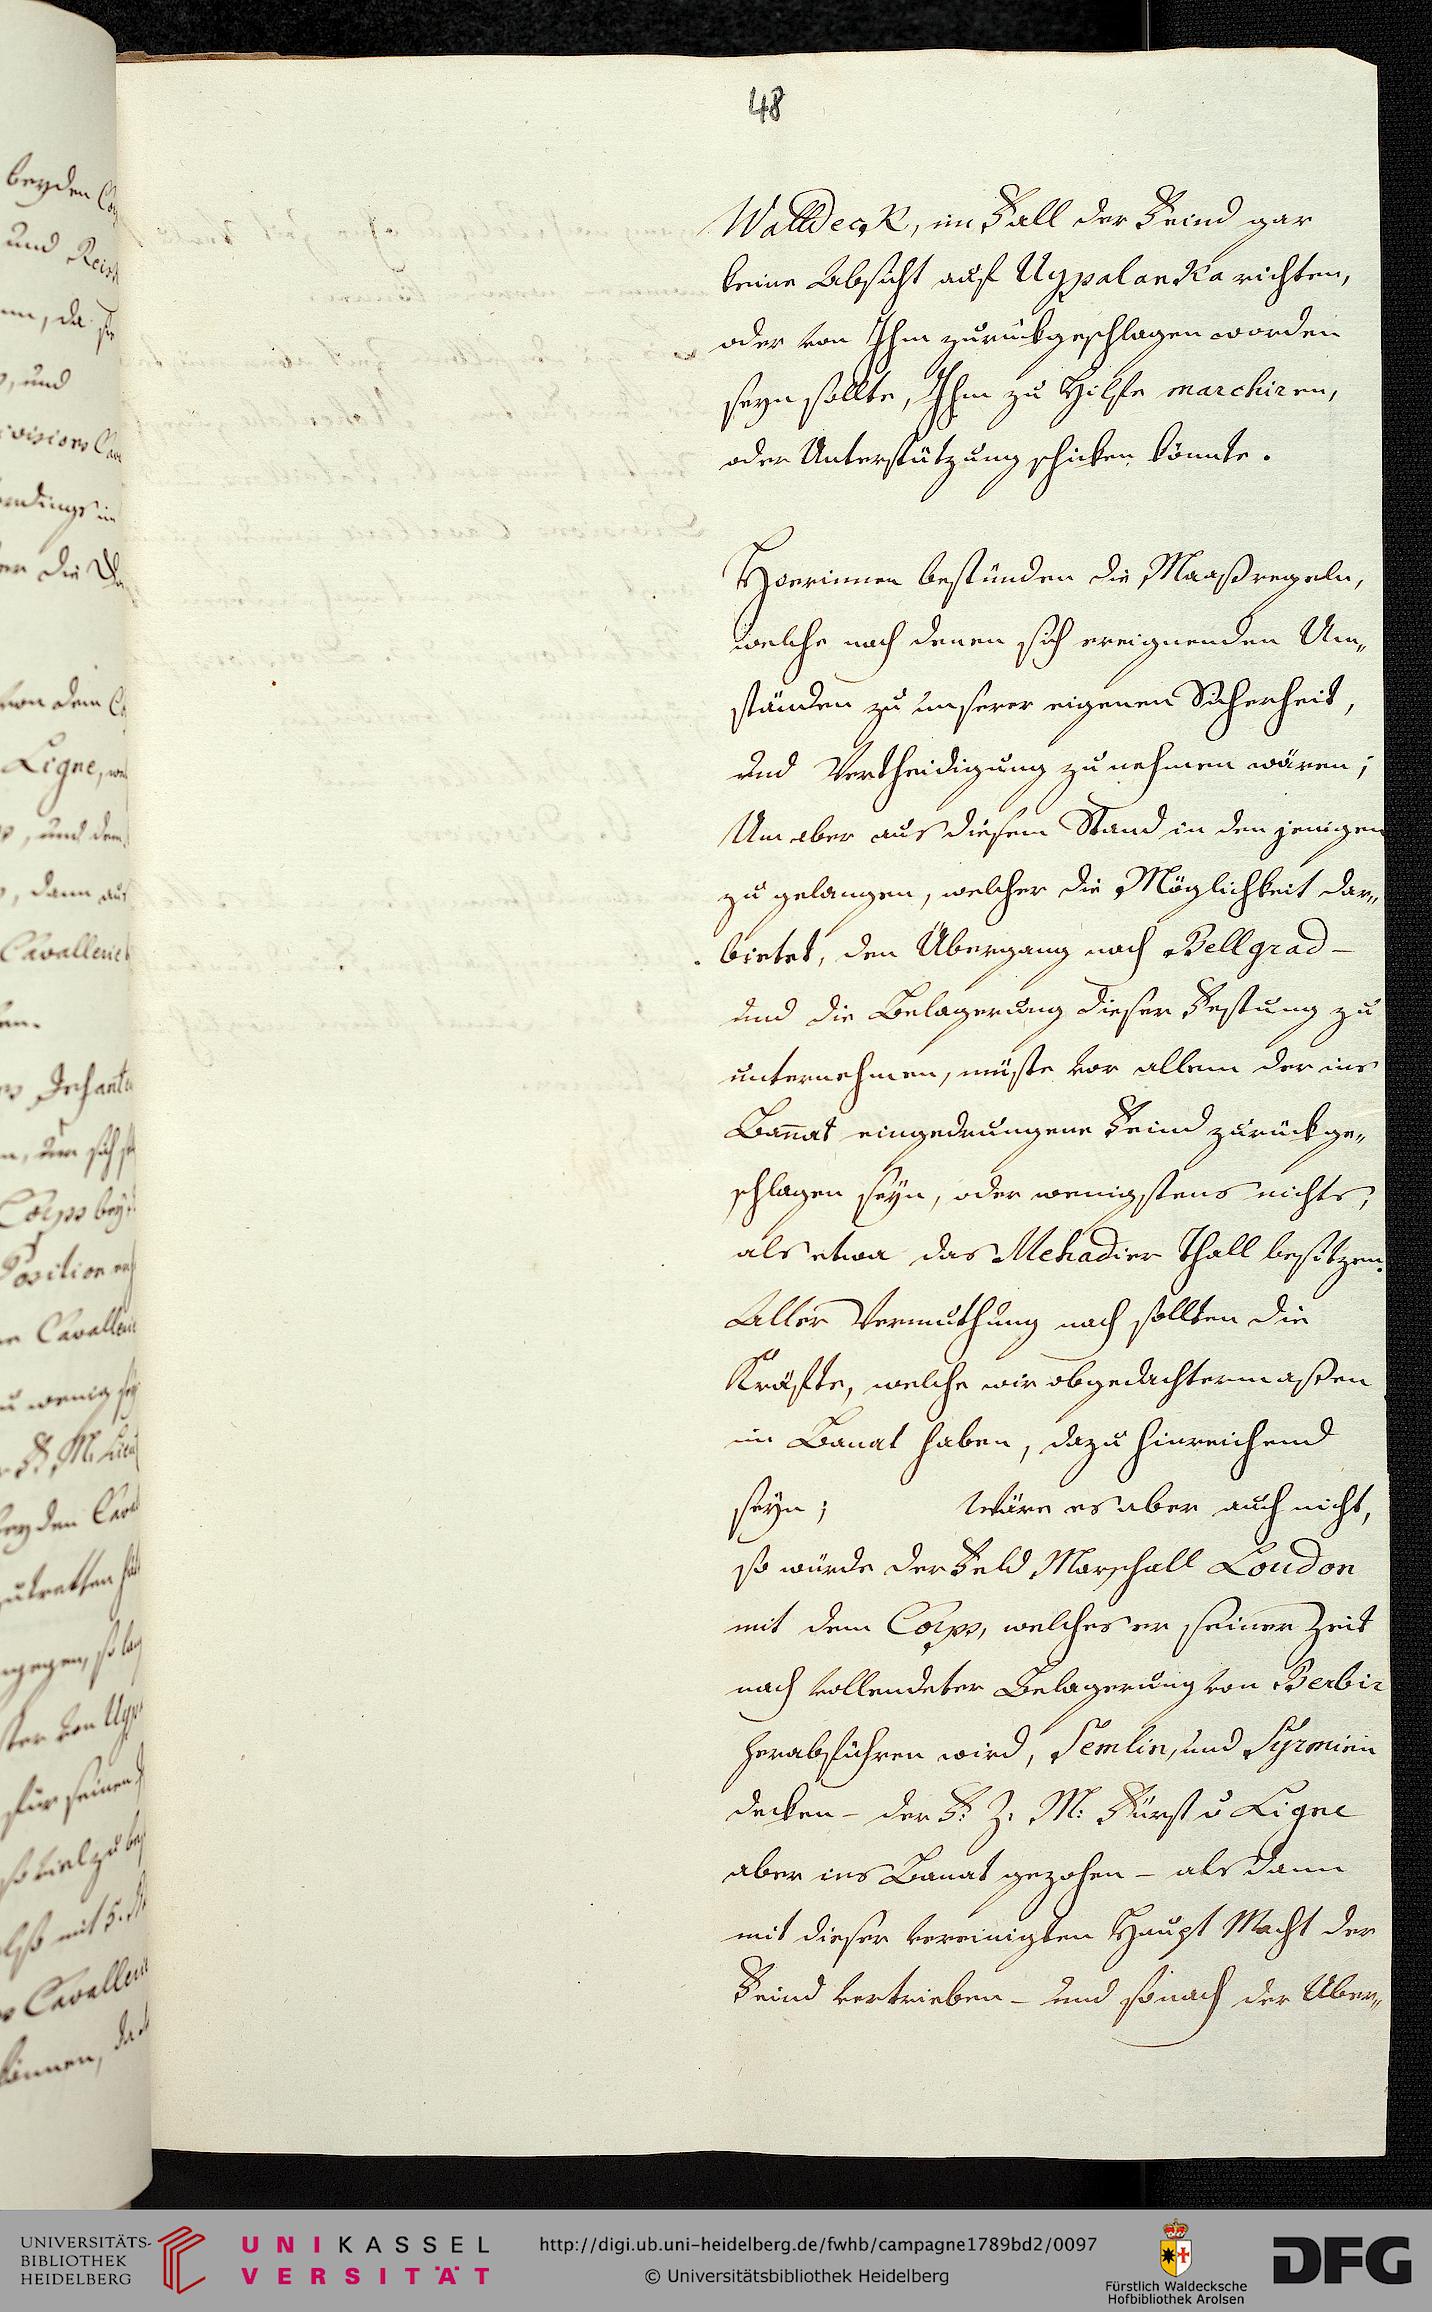 48
Walldeck, im Fall der Feind gar
keine Absicht auf Uypalanka richten,
oder von Ihm zurückgeschlagen worden
seyn sollte, Ihm zu Hilfe marchiren,
oder Unterstützung schicken könnte.
Hierinnen bestünden die Maaßregeln,
welche nach denen sich ereignenden Um„
ständen zu unserer eigenen Sicherheit,
und Vertheidigung zu nehmen wären;
Um aber aus diesem Stand in den jenigen
zu gelangen, welcher die Möglichkeit dar„
bietet, den Übergang nach Bellgrad –
und die Belagerung dieser Festung zu
unternehmen, müste vor allem der ins
Bannat eingedrungene Feind zurückge„
schlagen seyn, oder wenigstens nichts,
als etwa das Mehadier Thall besitzen.
Aller Vermuthung nach sollten die
Kräfte, welche wir obgedachtermaßen
im Banat haben, dazu hinreichend
seyn; Wäre es aber auch nicht,
so würde der Feld Marschall Loudon
mit dem Corps, welches er seiner Zeit
nach vollendeter Belagerung von Berbir
herabführen wird, Semlin, und Syrmien
decken – der F: Z: M: Fürst v Ligne
aber ins Banat gezohen – als dann
mit dieser vereinigten Haupt Macht der
Feind vertrieben – und sonach der Uber„
beyden
und
, da
, und
die
von dem
Ligne,
, und dem
, dann aus
Corps bey
Position
Cavallerie
zu wenig
bey den
zutretten
so lang
von Uyp
für seinen
so viel zu
mit 5.
Cavallerie
können,
UNIVERSITÄTS-
BIBLIOTHEK
HEIDELBERG
UNIKASSEL
VERSITÄT
http://digi.ub.uni-heidelberg.de/fwhb/campagne1789bd2/0097
© Universitätsbibliothek Heidelberg
Fürstlich Waldecksche
Hofbibliothek Arolsen
DFG